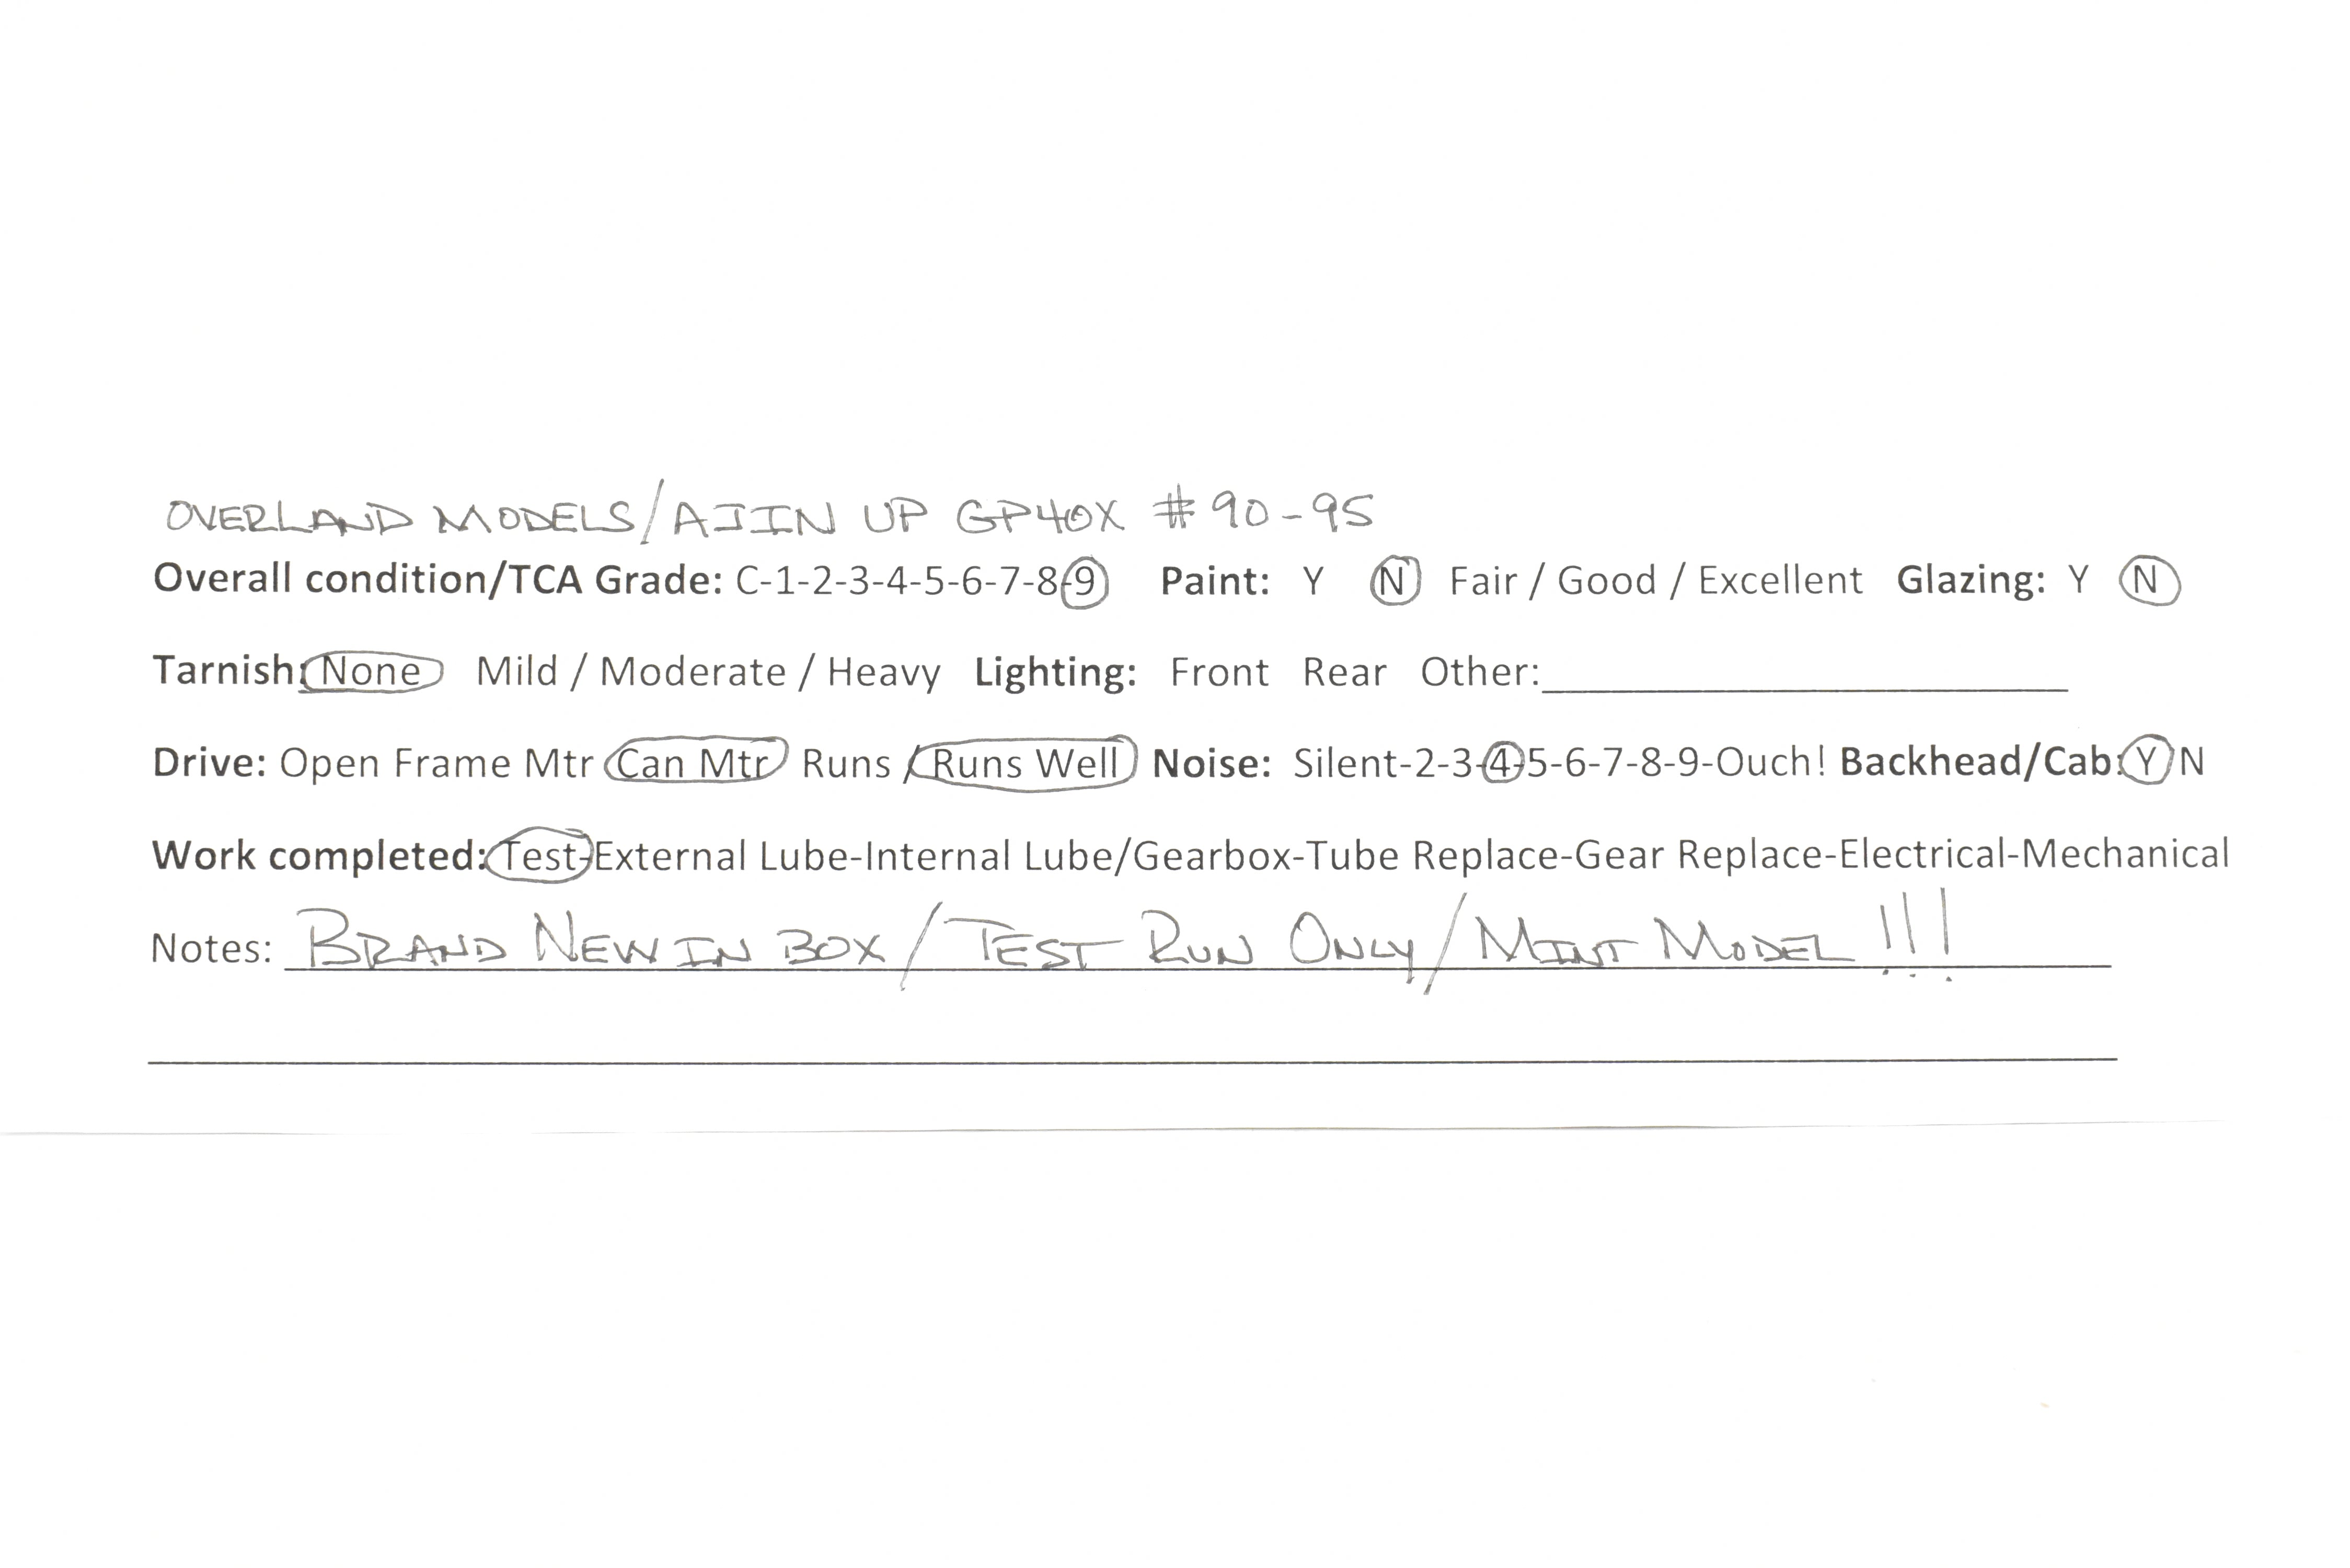 OVERLAND MODELS/AJIN UP GP40X #90-95
Overall condition/TCA Grade: C-1-2-3-4-5-6-7-8-9 Paint: Y N Fair / Good / Excellent Glazing: Y N
Tarnish: None Mild / Moderate / Heavy Lighting: Front Rear Other:
Drive: Open Frame Mtr Can Mtr Runs / Runs Well Noise: Silent-2-3-4-5-6-7-8-9-Ouch! Backhead/Cab: Y N
Work completed: Test-External Lube-Internal Lube/Gearbox-Tube Replace-Gear Replace-Electrical-Mechanical
Notes: BRAND NEW IN BOX/TEST RUN ONLY/MINT MODEL !!!